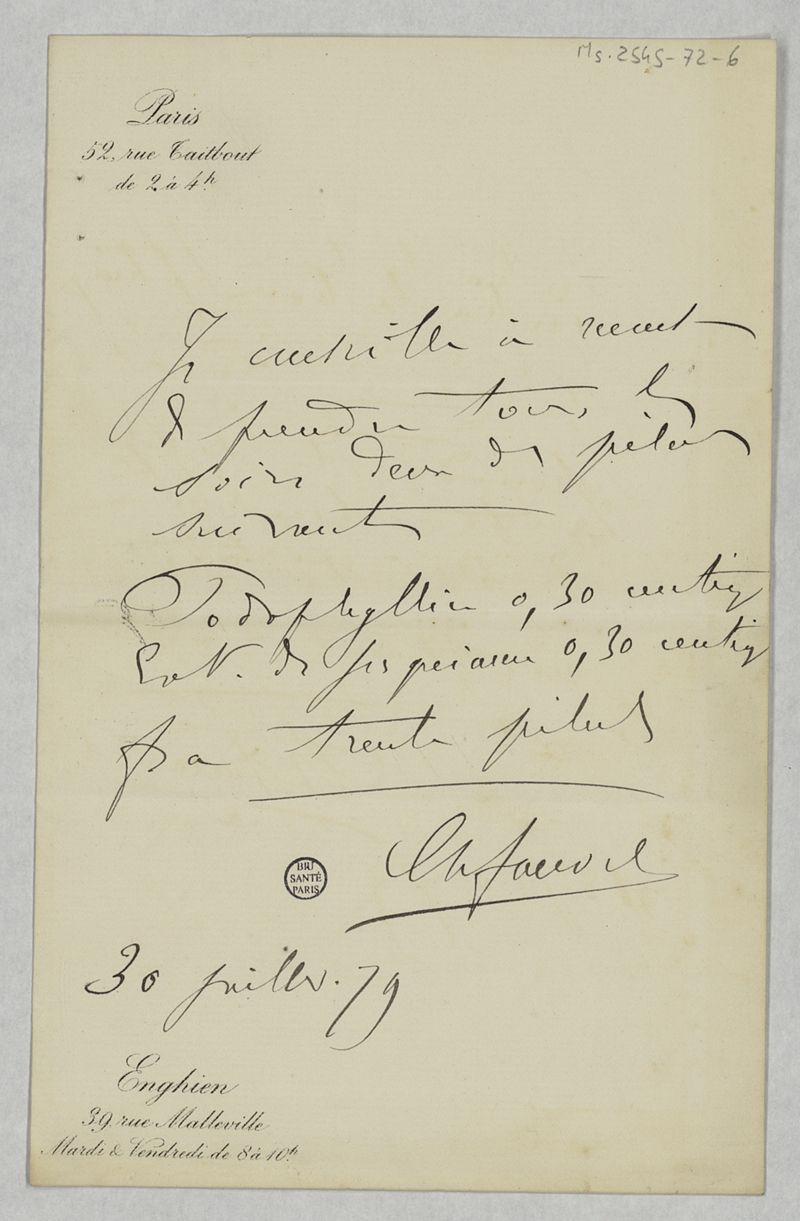 Ms. 2545-72-6
Paris
52, rue Taitbout
de 2 à 4h
Je conseille à
de prendre tous les
soirs deux des pilules
suivantes
Podophyllin 0,30 centig
Ext. de jusquiame 0,30 centig
pr trente pilules
Ch fauvel
BIU
SANTÉ
PARIS
30 juillet. 79
Enghien
39, rue Malleville
Mardi & Vendredi de 8 à 10h